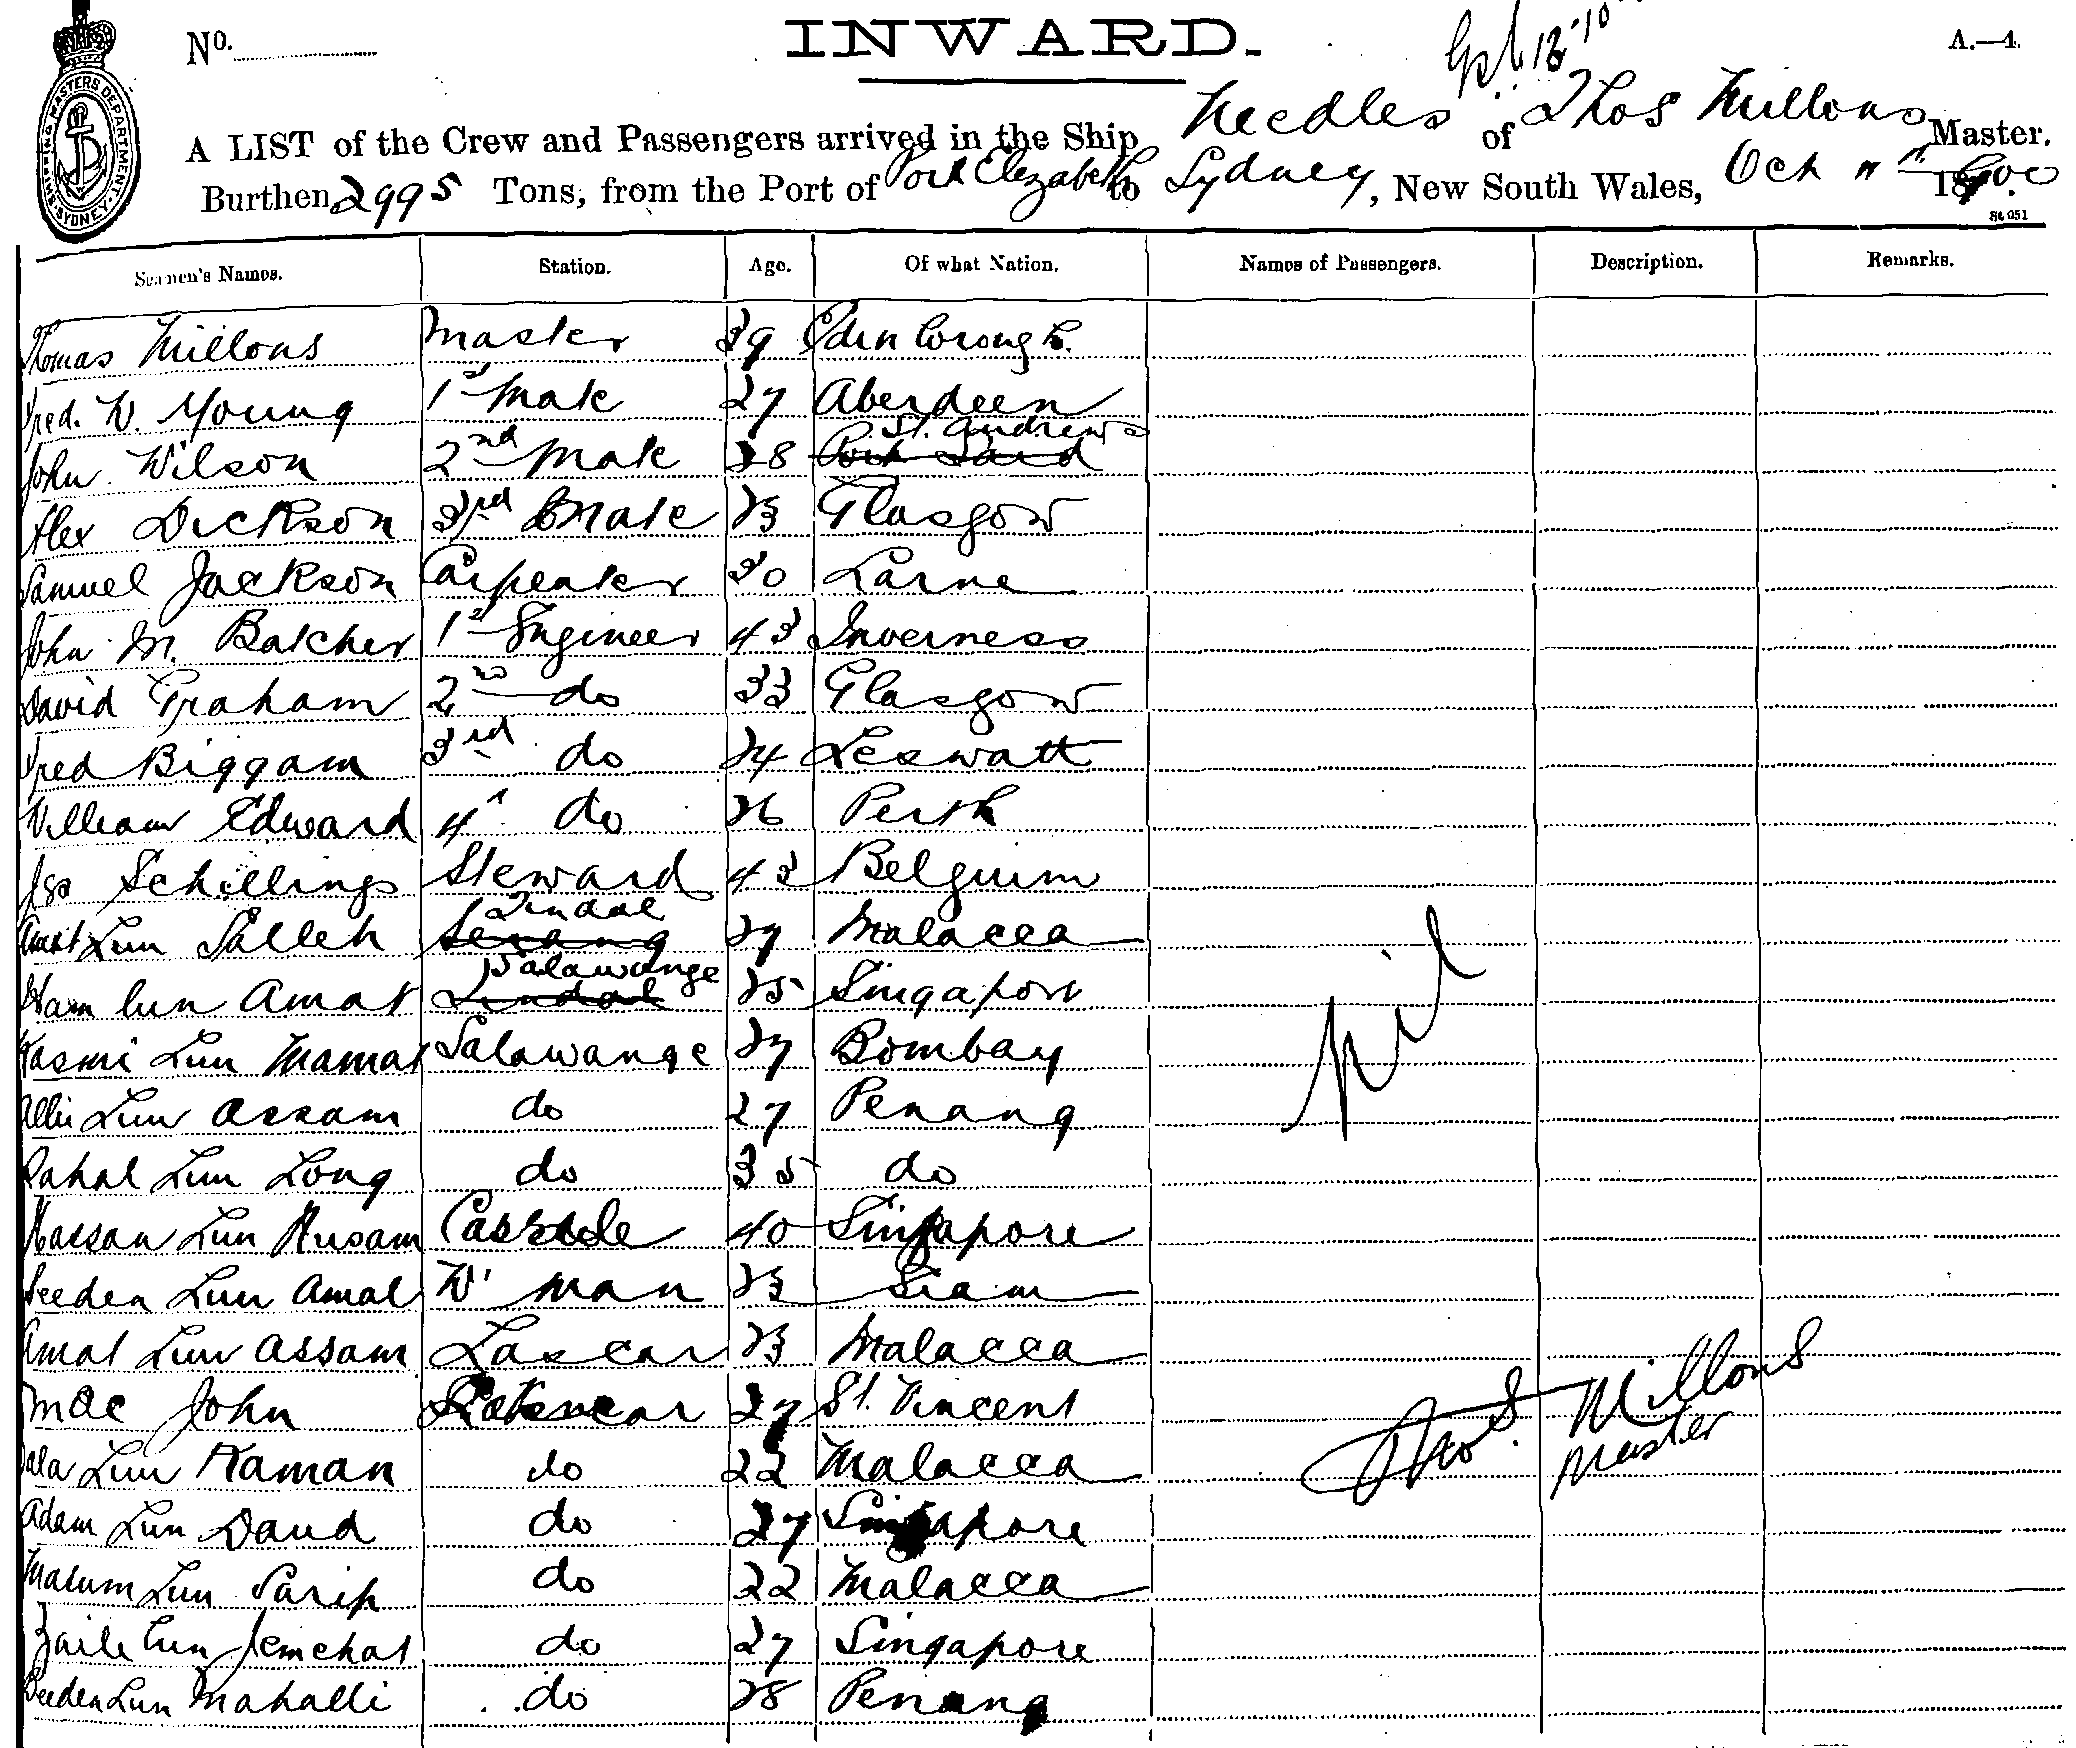 INWARD.
No.
A.—4.
SHIPPING MASTERS DEPARTMENT SYDNEY
A LIST of the Crew and Passengers arrived in the Ship Needles of Thos Millons Master.
Burthen 2995 Tons, from the Port of Port Elizabeth to Sydney, New South Wales, Oct 11th 1900
St 051
Seamen's Names. Station. Age. Of what Nation. Names of Passengers. Description. Remarks.
Thomas Millons Master 39 Edinborough.
Fred. W. Young 1st Mate 27 Aberdeen
St. Andrews
John Wilson 2nd Mate 28 Port Said
Alex Dickson 3rd Mate 23 Glasgow
Samuel Jackson Carpenter 30 Larne
John M. Batcher 1st Engineer 43 Inverness
David Graham 2nd do 33 Glasgow
Fred Biggam 3rd do 24 Leswatt
William Edward 4th do 26 Perth
Schillings Steward 43 Belgium
Tindal
Lun Salleh Serang 27 Malacca
Salawange
Ham lun Amat Tindal 25 Singapore
Kasmi Lun Mamat Salawange 27 Bombay
Allie Lun Assam do 27 Penang
Nil
Lun Long do 35 do
Hassan Lun Husam 40 Singapore
Seeden Lun Amal W' man 23 Siam
Amat Lun Assam Lascar 23 Malacca
John 27 St. Vincent
Thos. Millons
Master
Lun Kaman do 22 Malacca
Adam Lun Daud do 27 Singapore
Lun Sarip do 22 Malacca
Lun do 27 Singapore
Lun Mahalli do 28 Penang